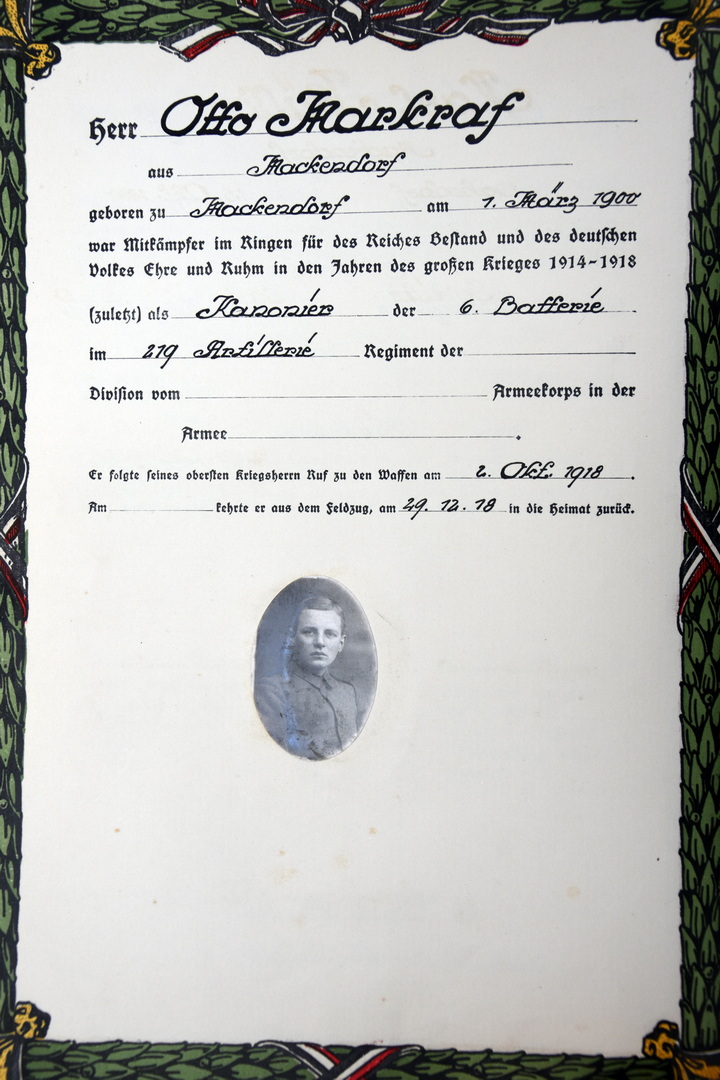 Herr Otto Markraf
aus Mackendorf
geboren zu Mackendorf am 1. März 1900
war Mitkämpfer im Ringen für des Reiches Bestand und des deutschen
Volkes Ehre und Ruhm in den Jahren des großen Krieges 1914-1918
(zuletzt) als Kanonier der 6. Batterie
im 219 Artillerie Regiment der
Division vom Armeekorps in der
Armee .
Er folgte seines obersten Kriegsherrn Ruf zu den Waffen am 2. Okt. 1918 .
Am kehrte er aus dem Feldzug, am 29. 12. 18 in die Heimat zurück.